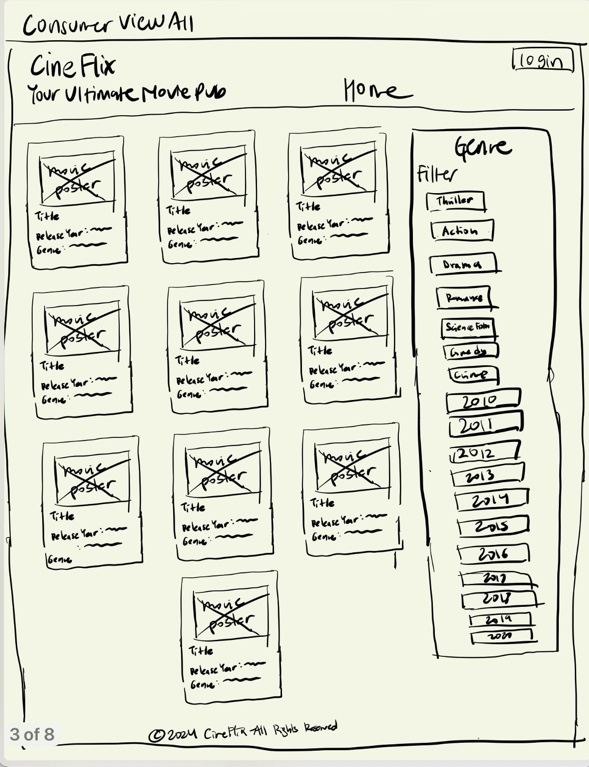 Consumer View All
CineFlix
Login
Your Ultimate Movie Pub
Home
movie poster
Title
Release Year:
Genre:
movie poster
Title
Release Year:
Genre:
movie poster
Title
Release Year:
Genre:
movie poster
Title
Release Year:
Genre:
movie poster
Title
Release Year:
Genre:
movie poster
Title
Release Year:
Genre:
movie poster
Title
Release Year:
Genre
movie poster
Title
Release Year:
Genre:
movie poster
Title
Release Year:
Genre:
movie poster
Title
Release Year:
Genre:
Genre
Filter
Thriller
Action
Drama
Romance
Science Fiction
Comedy
Crime
2010
2011
2012
2013
2014
2015
2016
2017
2018
2019
2020
©2024 CineFlix All Rights Reserved
3 of 8